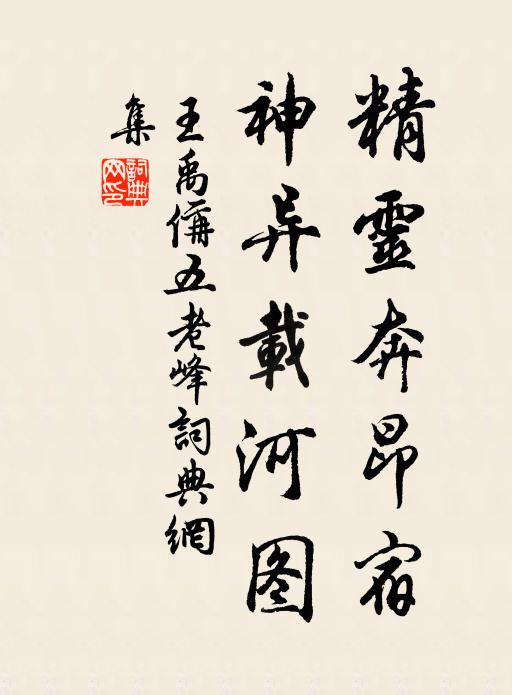 精靈奔昂宿
神异載河图
王禹偁五老峰詞典網
集
詞典網印